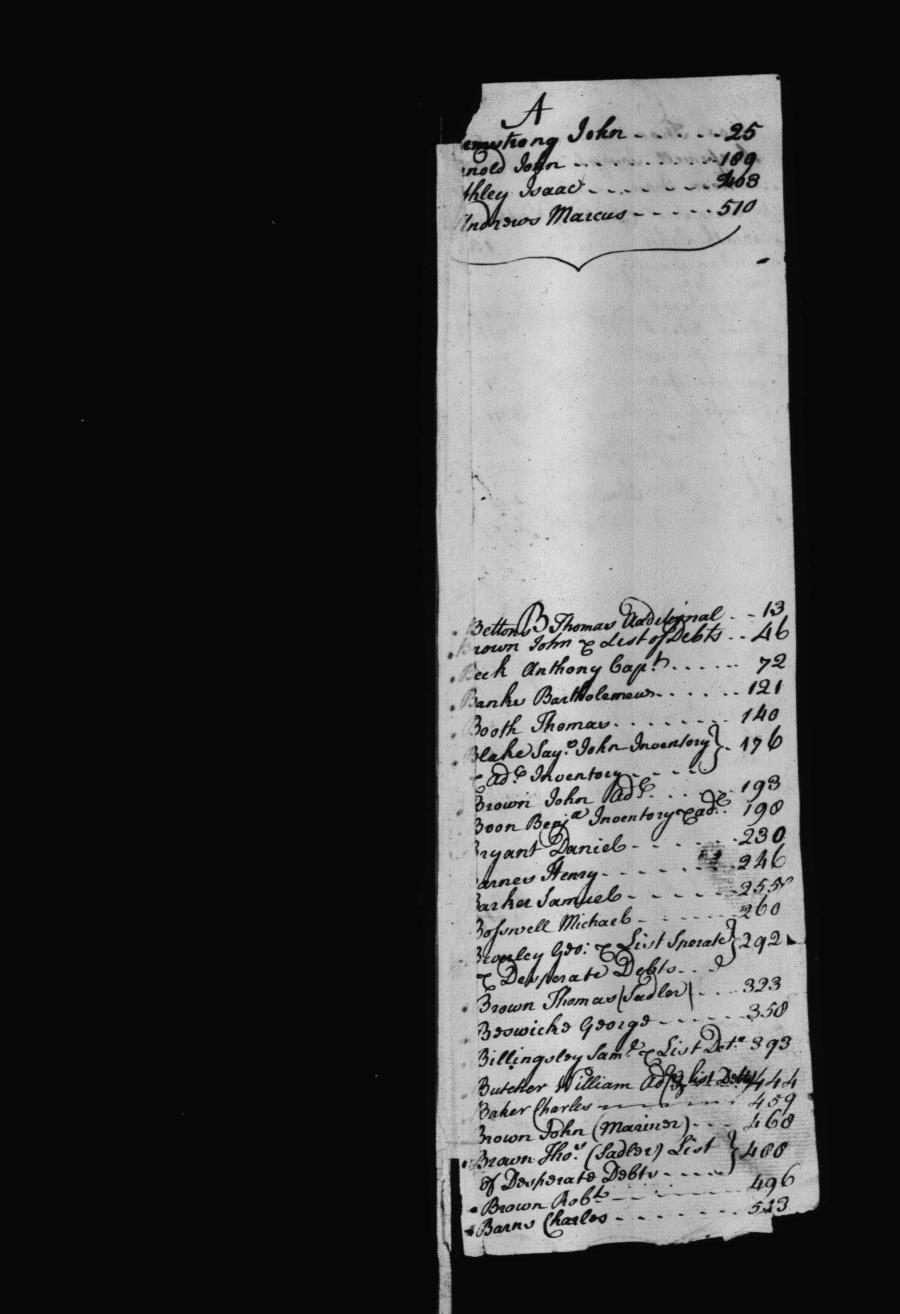 A
rmstrong John - - - - 25
rnold John - - - - - - 189
shley Isaac - - - - - - 408
Andrews Marcus - - - - - 510
B
Bettons Thomas Additional - - 13
Brown John & List of Debts - - 46
Beck Anthony Capt. - - - - - 72
Banks Bartholemew - - - - - 121
Booth Thomas - - - - - - - 140
Blake Say.s John Inventory } - 176
& Ad.l Inventory - - - -
Brown John Ad.l - - - - - 193
Boon Benj.a Inventory & ad.l - 198
Bryant Daniel - - - - - - 230
arnes Henry - - - - - - 246
arker Samuel - - - - - - 255
Boswell Michael - - - - - 260
Bromley Geo: & List Sperate } 292
& Desperate Debts - -
Brown Thomas (Sadler) - - - 323
Beswicke George - - - - - 358
Billingsley Sam.l & List Det.s 393
Butcher William Ad.l (& list Debts) 444
Baker Charles - - - - - 459
Brown John (Mariner) - - - 468
Brown Tho.s (Sadler) List } 488
of Desperate Debts - - - -
Brown Rob.t - - - - - - 496
Barns Charles - - - - - - 513